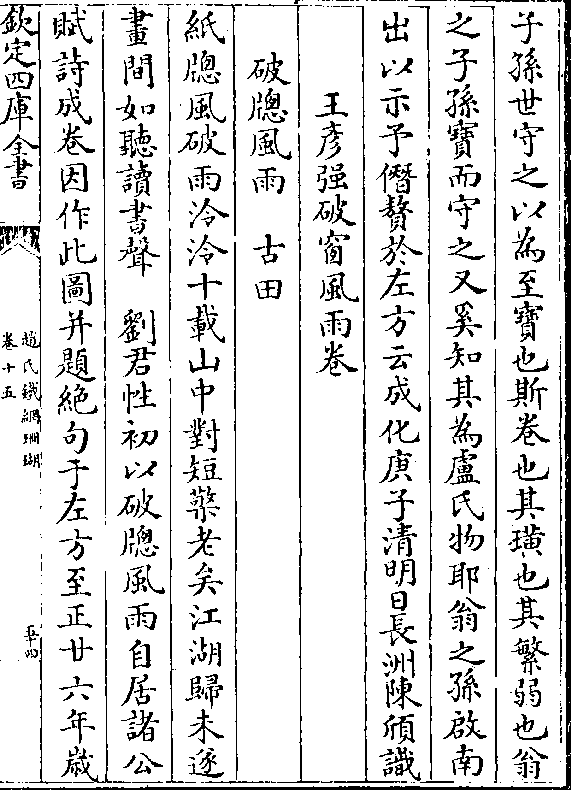 子孫世守之以為至寶也斯卷也其璜也其繁弱也翁
之子孫寶而守之又奚知其為盧氏物耶翁之孫啟南
出以示予僭贅於左方云成化庚子清明日長洲陳頎識
王彦强破窗風雨卷
破牕風雨　古田
紙牕風破雨泠泠十載山中對短檠老矣江湖歸未遂
畫間如聽讀書聲　劉君性初以破牕風雨自居諸公
賦詩成卷因作此圖并題絶句于左方至正廿六年嵗
欽定四庫全書
趙氏鐵網珊瑚
卷十五